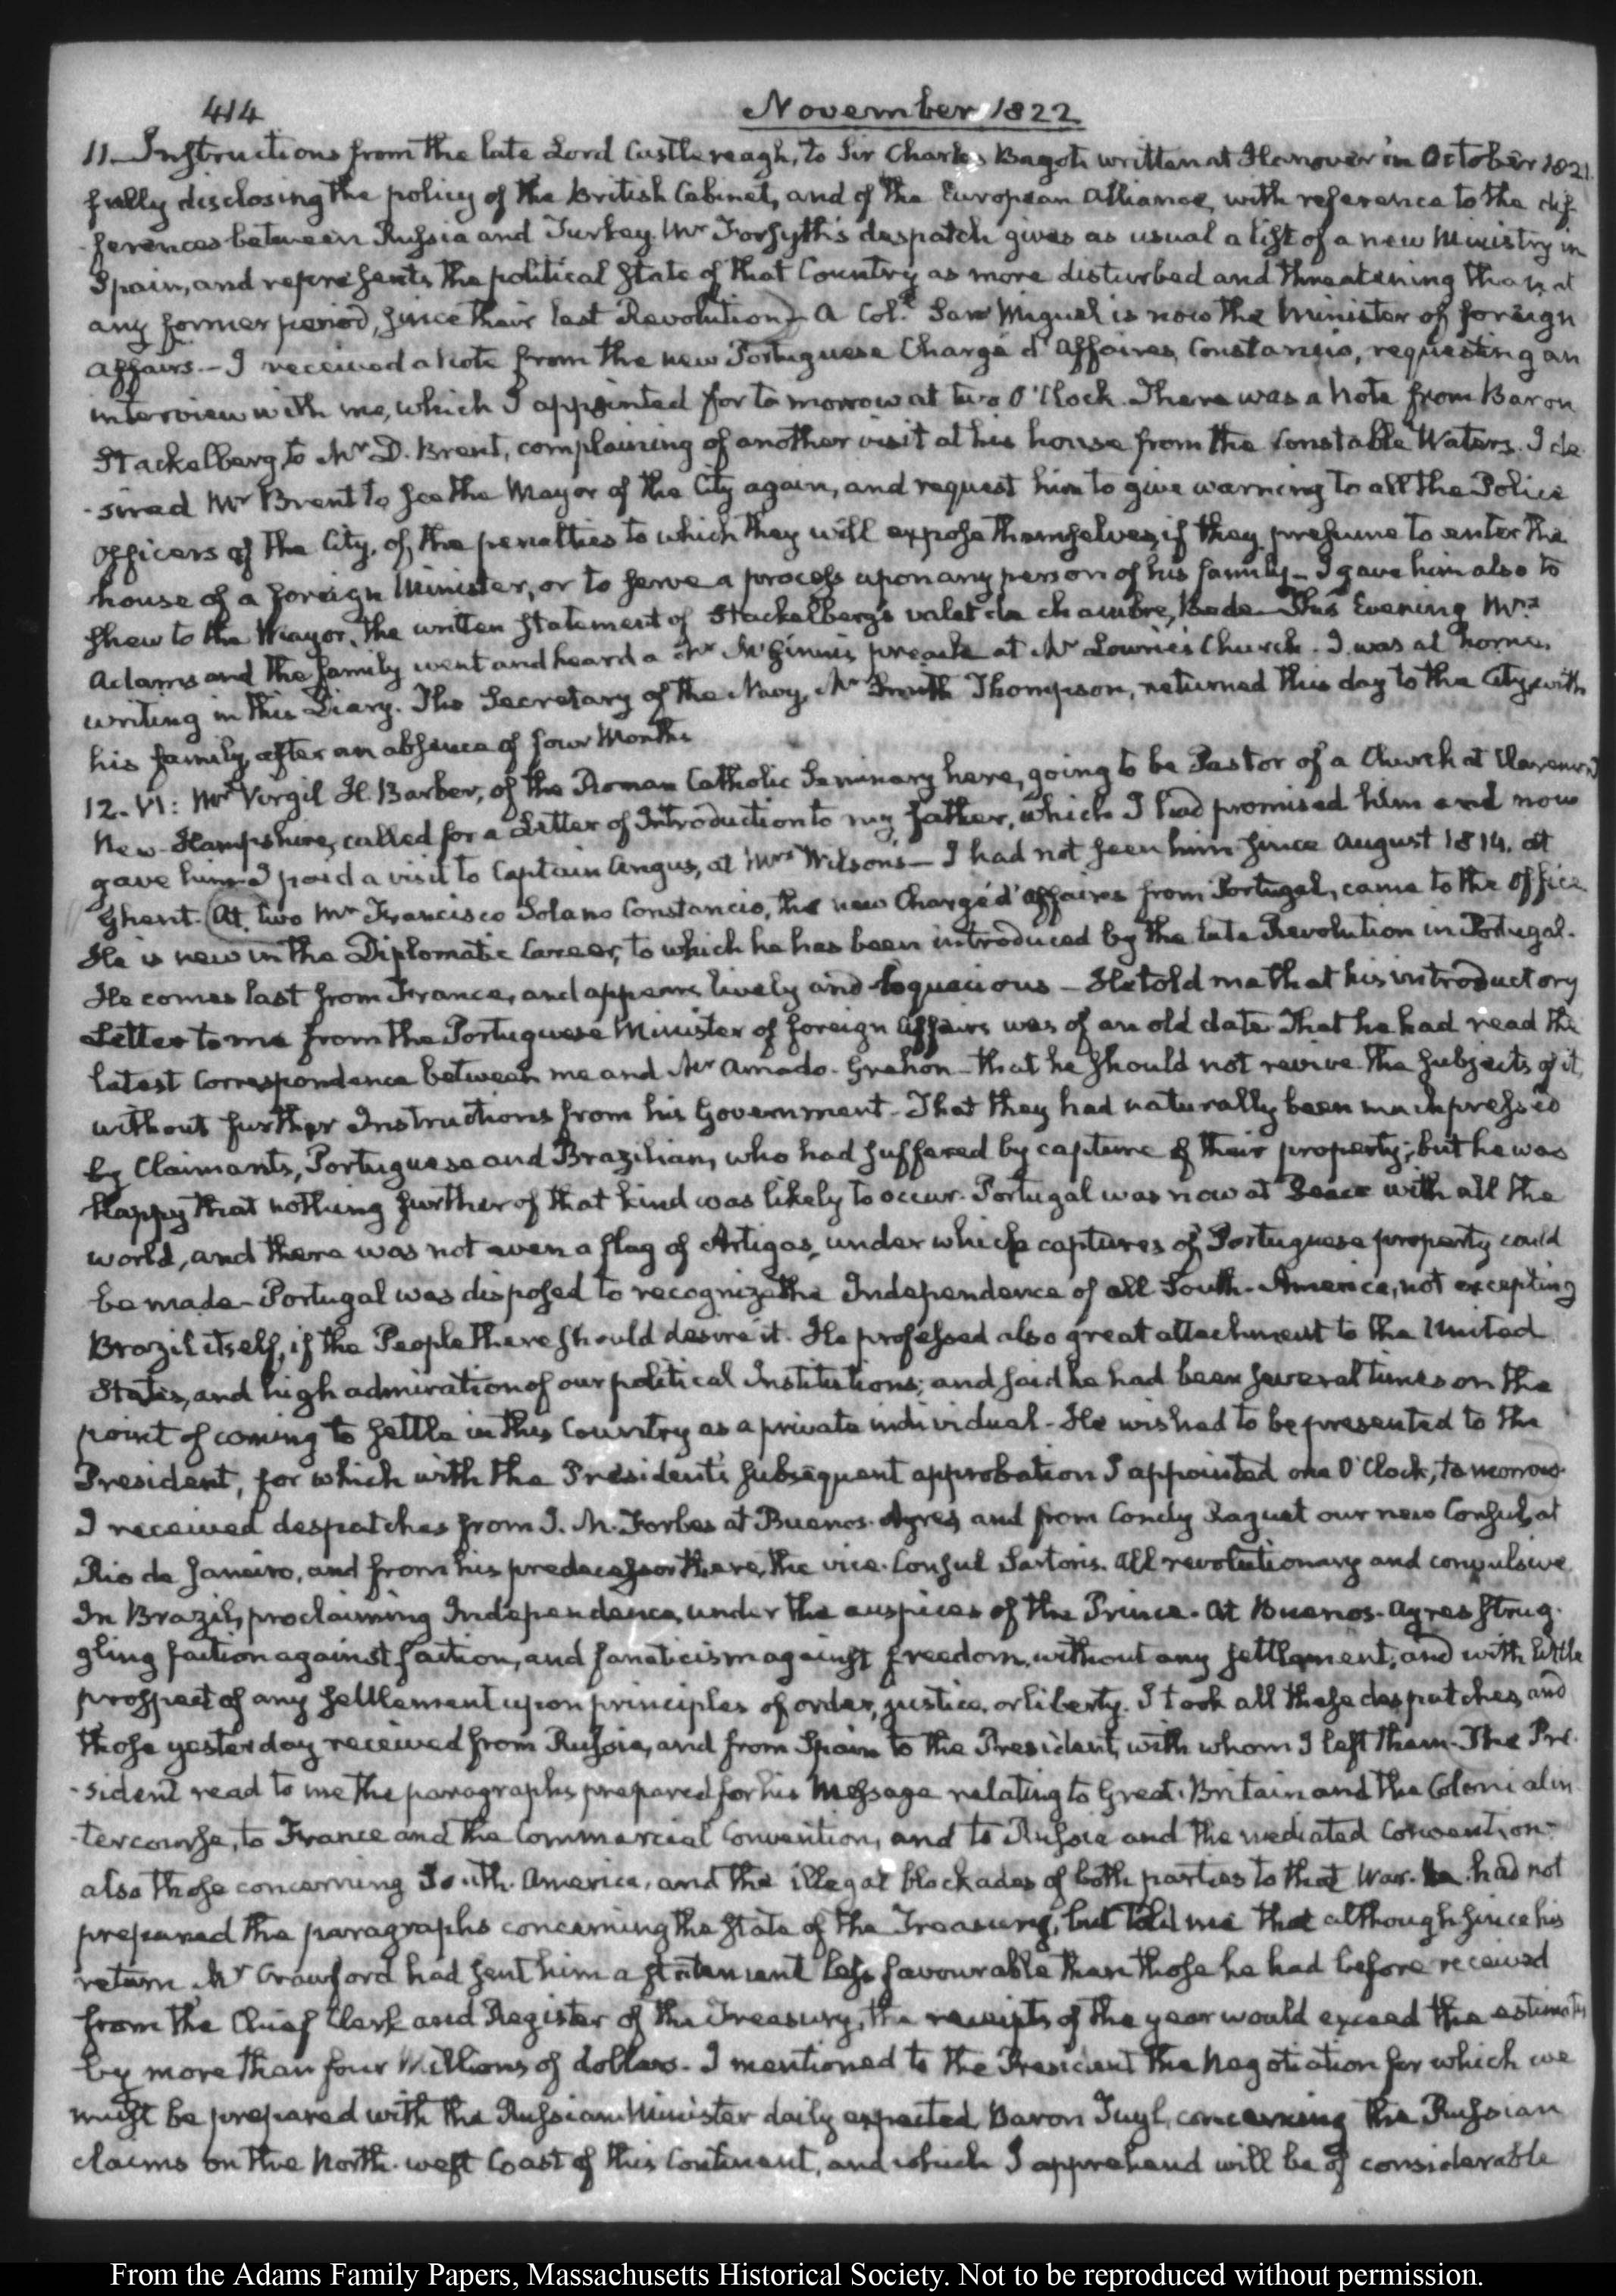 414
November 1822
11. Instructions from the late Lord Castlereagh, to Sir Charles Bagot written at Hanover in October 1821.
fully disclosing the policy of the British Cabinet, and of the European Alliance, with reference to the dif-
-ferences between Russia and Turkey. Mr Forsyth's despatch gives as usual a list of a new Ministry in
Spain, and represents the political state of that Country as more disturbed and threatening than at
any former period, since their last Revolution. A Coll. San Miguel is now the Minister of foreign
affairs.— I received a Note from the new Portuguese Chargé d'Affaires, Constancio, requesting an
interview with me, which I appointed for to morrow at two O'Clock. There was a Note from Baron
Stackelberg to Mr D. Brent, complaining of another visit at his house from the Constable Waters. I de-
-sired Mr Brent to see the Mayor of the City again, and request him to give warning to all the Police
Officers of the City, of the penalties to which they will expose themselves, if they presume to enter the
house of a foreign Minister, or to serve a process upon any person of his family— I gave him also to
shew to the Mayor, the written statement of Stackelberg's valet de chambre, Bade— This Evening Mrs
Adams and the family went and heard a Mr McGinnis preach at Mr Lowrie's Church. I was at home,
writing in this Diary. The Secretary of the Navy, Mr Smith Thompson, returned this day to the City, with
his family, after an absence of four Months
12. VI: Mr Virgil H. Barber, of the Roman Catholic Seminary here, going to be Pastor of a Church at Claremont
New-Hampshire, called for a Letter of Introduction to my father, which I had promised him and now
gave him— I paid a visit to Captain Angus, at Mrs Wilson's— I had not seen him since August 1814. at
Ghent. At two Mr Francisco Solano Constancio, the new Chargé d'affaires from Portugal, came to the Office
He is new in the Diplomatic Career, to which he has been introduced by the late Revolution in Portugal.
He comes last from France, and appears lively and loquacious— He told me that his introductory
Letter to me from the Portuguese Minister of foreign Affairs was of an old date. That he had read the
latest Correspondence between me and Mr Amado-Grehon— that he should not revive the subjects of it,
without further Instructions from his Government— That they had naturally been much pressed
by Claimants, Portuguese and Brazilian, who had suffered by capture of their property; but he was
happy that nothing further of that kind was likely to occur. Portugal was now at Peace with all the
world, and there was not even a flag of Artigas, under which captures of Portuguese property could
be made— Portugal was disposed to recognize the Independence of all South-America, not excepting
Brazil itself, if the People there should desire it. He professed also great attachment to the United
States, and high admiration of our political Institutions; and said he had been several times on the
point of coming to settle in this Country as a private individual— He wished to be presented to the
President, for which with the President's subsequent approbation I appointed one O'Clock, to morrow.
I received despatches from J. M. Forbes at Buenos-Ayres, and from Condy Raguet our new Consul, at
Rio de Janeiro, and from his predecessor there, the vice-Consul Sartoris. All revolutionary and convulsive.
In Brazil, proclaiming Independence, under the auspices of the Prince— At Buenos-Ayres strug-
gling faction against faction, and fanaticism against freedom, without any settlement, and with little
prospect of any settlement upon principles of order, justice, or liberty. I took all these despatches, and
those yesterday received from Russia, and from Spain to the President, with whom I left them— The Pre-
-sident read to me the paragraphs prepared for his Message relating to Great-Britain and the Colonial in-
-tercourse, to France and the Commercial Convention, and to Russia and the mediated Convention—
also those concerning South-America, and the illegal blockades of both parties to that War. He had not
prepared the paragraphs concerning the state of the Treasury, but told me that although since his
return Mr Crawford had sent him a statement less favourable than those he had before received
from the Chief Clerk and Register of the Treasury, the receipts of the year would exceed the estimates
by more than four Millions of dollars— I mentioned to the President the Negotiation for which we
must be prepared with the Russian Minister daily expected Baron Tuyl, concerning the Russian
claims on the North-west Coast of this Continent, and which I apprehend will be of considerable
From the Adams Family Papers, Massachusetts Historical Society. Not to be reproduced without permission.